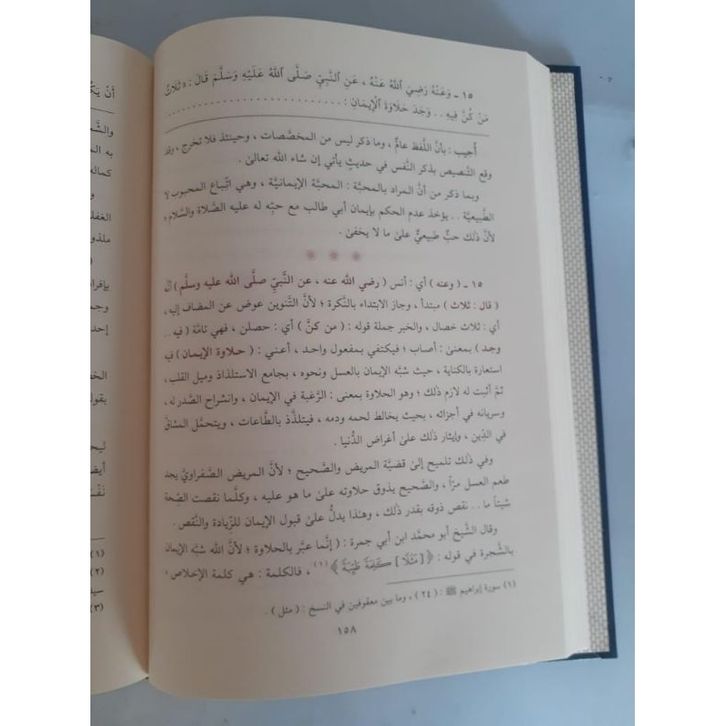 ١٥ ـ وَعَنْهُ رَضِيَ ٱللهُ عَنْهُ ، عَنِ ٱلنَّبِيِّ صَلَّى ٱللهُ عَلَيْهِ وَسَلَّمَ قَالَ : « ثَلَاثٌ
مَنْ كُنَّ فِيهِ . . وَجَدَ حَلَاوَةَ ٱلْإِيمَانِ :
أُجيب : بأنَّ اللَّفظ عامٌّ ، وما ذكر ليس من المخصِّصات ، وحينئذ فلا تخرج ، وقد
وقع التَّنصيص بذكر النَّفس في حديثٍ يأتي إن شاء الله تعالىٰ .
وبما ذكر من أنَّ المراد بالمحبَّة : المحبَّة الإيمانيَّة ، وهي اتِّباع المحبوب لا
الطَّبيعيَّة . . يؤخذ عدم الحكم بإيمان أبي طالب مع حبِّه له عليه الصَّلاة والسَّلام ؛
لأنَّ ذٰلك حبٌّ طبيعيٌّ علىٰ ما لا يخفىٰ .
١٥ ـ ( وعنه ) أي : أنس ( رضي الله عنه ، عن النَّبيِّ صلَّى الله عليه وسلَّم ) أنَّه
( قال : ثلاث ) مبتدأ ، وجاز الابتداء بالنَّكرة ؛ لأنَّ التَّنوين عوض عن المضاف إليه ،
أي : ثلاث خصال ، والخبر جملة قوله : ( من كنَّ ) أي : حصلن ، فهي تامَّة ( فيه . .
وجد ) بمعنىٰ : أصاب ؛ فيكتفي بمفعول واحد ، أعني : ( حلاوة الإيمان ) فيه
استعارة بالكناية ، حيث شبَّه الإيمان بالعسل ونحوه ، بجامع الاستلذاذ وميل القلب ،
ثمَّ أثبت له لازم ذٰلك ؛ وهو الحلاوة بمعنىٰ : الرَّغبة في الإيمان ، وانشراح الصَّدر له ،
وسريانه في أجزائه ، بحيث يخالط لحمه ودمه ، فيتلذَّذ بالطَّاعات ، ويتحمَّل المشاقَّ
في الدِّين ، وإيثار ذٰلك علىٰ أغراض الدُّنيا .
وفي ذٰلك تلميح إلىٰ قضيَّة المريض والصَّحيح ؛ لأنَّ المريض الصَّفراويَّ يجد
طعم العسل مرّاً ، والصَّحيح يذوق حلاوته علىٰ ما هو عليه ، وكلَّما نقصت الصِّحة
شيئاً ما . . نقص ذوقه بقدر ذٰلك ، وهٰذا يدلُّ علىٰ قبول الإيمان للزِّيادة والنَّقص .
وقال الشَّيخ أبو محمَّد ابن أبي جمرة : ( إنَّما عبَّر بالحلاوة ؛ لأنَّ الله شبَّه الإيمان
بالشَّجرة في قوله : ﴿ [ مَثَلًا ] كَلِمَةً طَيِّبَةً ﴾ (١) ، فالكلمة : هي كلمة الإخلاص ،
(١) سورة إبراهيم ﷺ : ( ٢٤ ) ، وما بين معقوفين في النسخ : ( مثل ) .
١٥٨